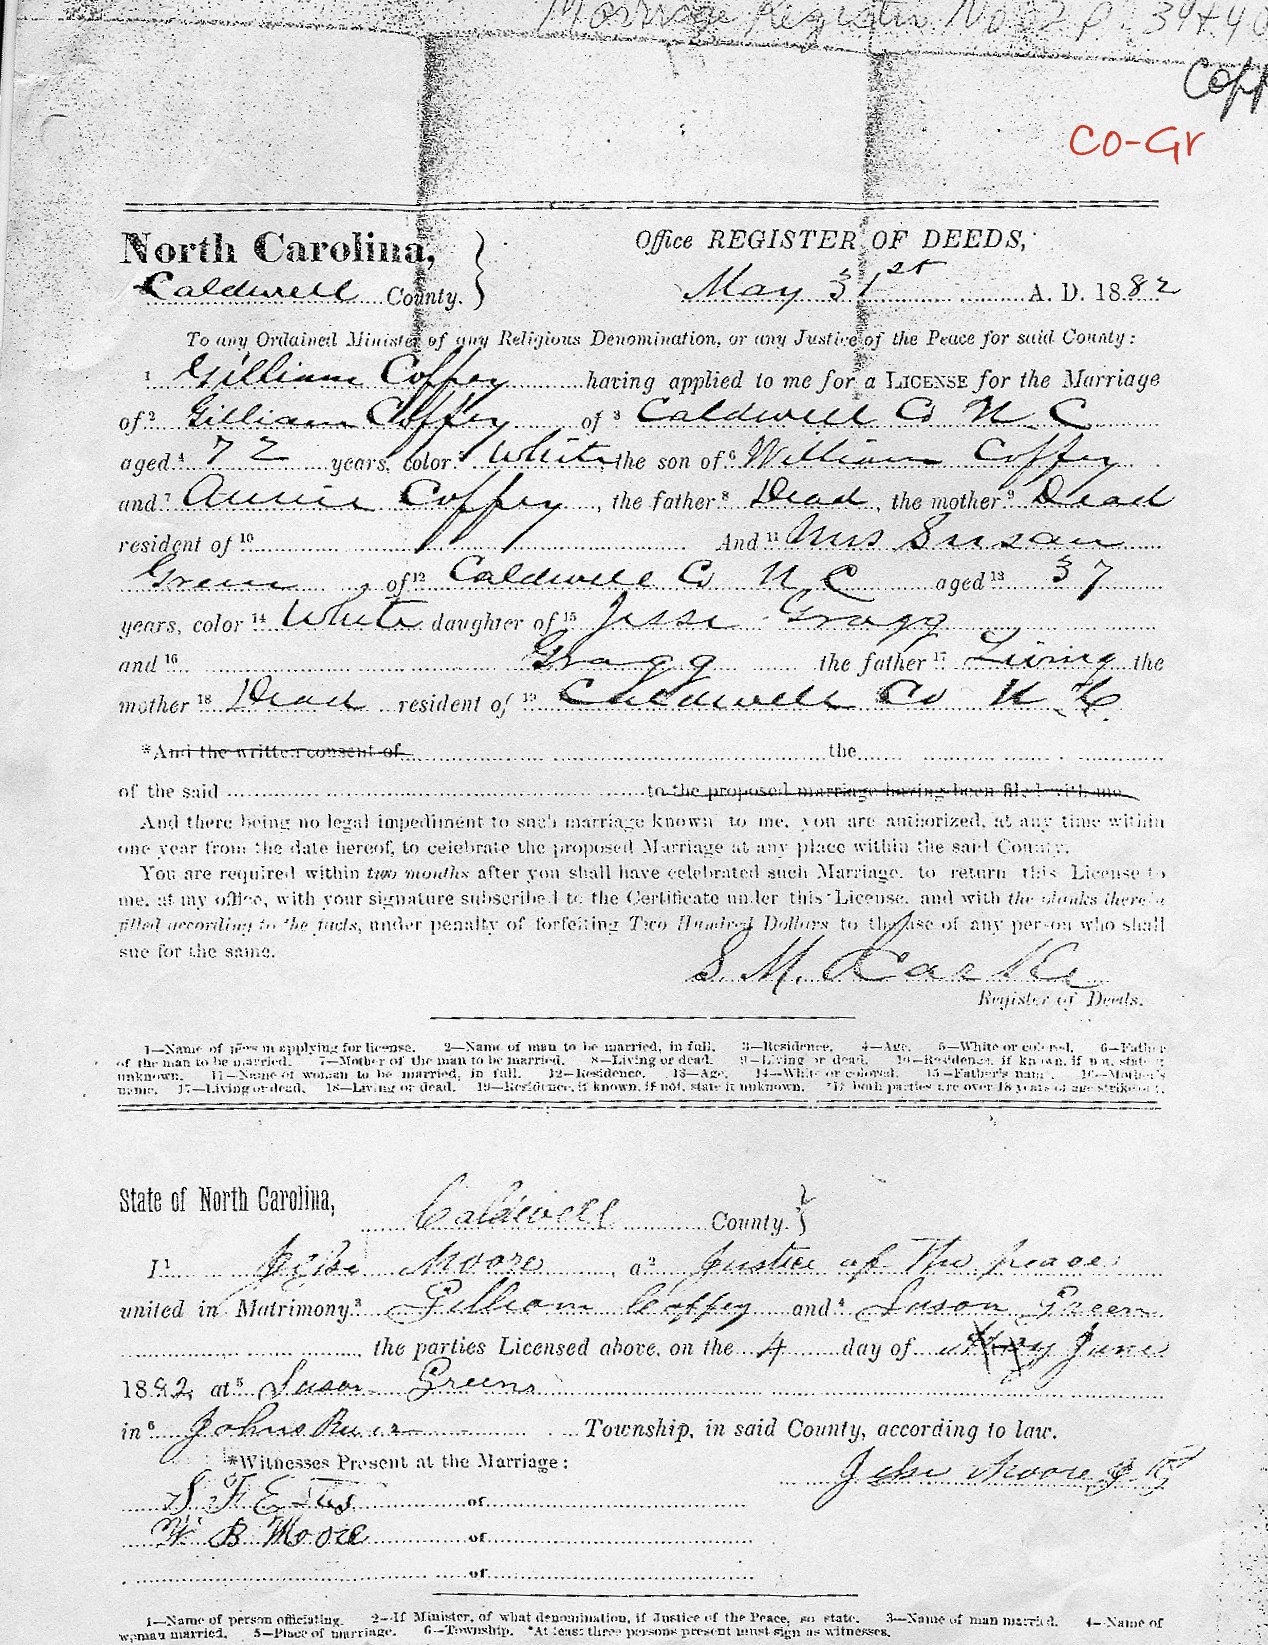 Marriage Register No 02 p. 39 & 40
Copy
CO-Gr
North Carolina,
Caldwell County.
Office REGISTER OF DEEDS,
May 31st A. D. 1882
To any Ordained Minister of any Religious Denomination, or any Justice of the Peace for said County:
1 Gilliam Coffey having applied to me for a LICENSE for the Marriage
of 2 Gilliam Coffey of 3 Caldwell Co N. C
aged 4 72 years, color 5 White, the son of 6 William Coffey
and 7 Annie Coffey, the father 8 Dead, the mother 9 Dead
resident of 10 And 11 Mrs Susan
Green, of 12 Caldwell Co N C aged 13 37
years, color 14 White daughter of 15 Jesse Gragg
and 16 Gragg the father 17 Living the
mother 18 Dead resident of 19 Caldwell Co N. C.
*And the written consent of the
of the said to the proposed marriage having been filed with me
And there being no legal impediment to such marriage known to me, you are authorized, at any time within
one year from the date hereof, to celebrate the proposed Marriage at any place within the said County.
You are required within two months after you shall have celebrated such Marriage, to return this License to
me, at my office, with your signature subscribed to the Certificate under this License, and with the blanks therein
filled according to the facts, under penalty of forfeiting Two Hundred Dollars to the use of any person who shall
sue for the same.
S. M.
Register of Deeds.
1—Name of person applying for license. 2—Name of man to be married, in full. 3—Residence. 4—Age. 5—White or colored. 6—Father
of the man to be married. 7—Mother of the man to be married. 8—Living or dead. 9—Living or dead. 10—Residence, if known, if not, state it
unknown. 11—Name of woman to be married, in full. 12—Residence. 13—Age. 14—White or colored. 15—Father's name. 16—Mother's
name. 17—Living or dead. 18—Living or dead. 19—Residence, if known, if not, state it unknown. *If both parties are over 18 years of age strike out.
State of North Carolina,
Caldwell County.
I 1 Moore, a 2 Justice of The peace
united in Matrimony 3 Gilliam Coffey and 4 Suson Green
the parties Licensed above, on the 4 day of May June
1882, at 5 Suson Greens
in 6 Johns River Township, in said County, according to law.
*Witnesses Present at the Marriage:
Moore J. P.
S. F. Estes of
W. B Moore of
of
1—Name of person officiating. 2—If Minister, of what denomination, if Justice of the Peace, so state. 3—Name of man married. 4—Name of
woman married. 5—Place of marriage. 6—Township. *At least three persons present must sign as witnesses.